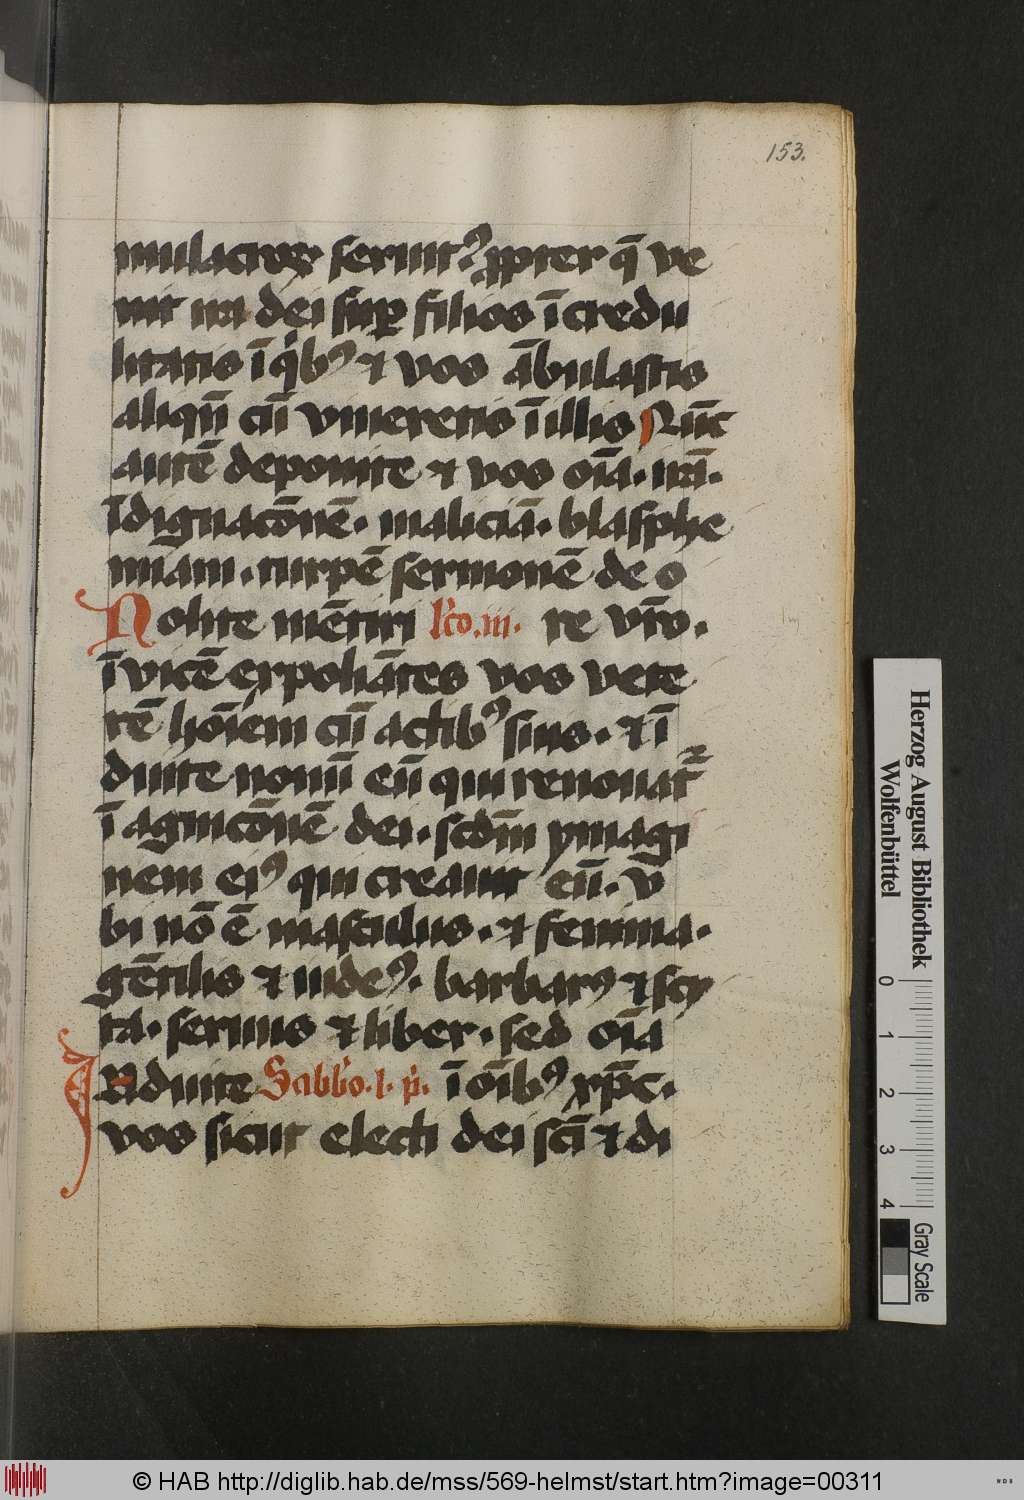 153.
mulacroꝝ seruit⁹ ꝓpter q̄ ve
nit ira dei suꝑ filios ī credu
litatis ī qͥb⁹ ⁊ vos ābulastis
aliqn̄ cū viueretis ī illis Nūc
autē deponite ⁊ vos oīa. irā.
īdignacōnē. maliciā. blasphe
miam. turpē sermonē de o
Nolite mētiri lc̄o.iii. re vr̄o.
īvicē exspoliātes vos vete
rē hoīem cū actib⁹ suis. ⁊ ī
duite nouū eū qui renouat᷑
ī agnicōnē dei. scdm̄ ymagi
nem ei⁹ qui creauit eū. v
bi nō ē masculus. ⁊ femina.
gētilis ⁊ iude⁹. barbar⁹ ⁊ scy
ta. seruus ⁊ liber. sed oīa
Induite Sabb̄o.l.p̄. ī oīb⁹ xp̄c.
vos sicut electi dei scī ⁊ di
Herzog August Bibliothek
Wolfenbüttel
0 1 2 3 4
Gray Scale
© HAB http://diglib.hab.de/mss/569-helmst/start.htm?image=00311